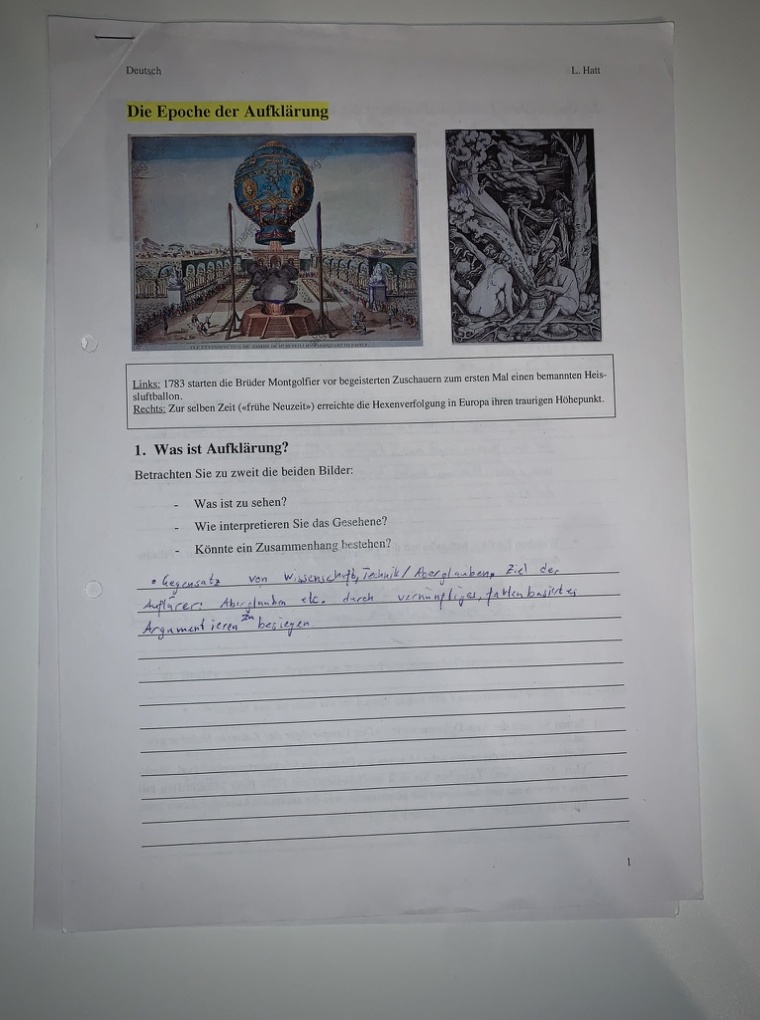 Deutsch L. Hatt
Die Epoche der Aufklärung
Links: 1783 starten die Brüder Montgolfier vor begeisterten Zuschauern zum ersten Mal einen bemannten Heis-
sluftballon.
Rechts: Zur selben Zeit («frühe Neuzeit») erreichte die Hexenverfolgung in Europa ihren traurigen Höhepunkt.
1. Was ist Aufklärung?
Betrachten Sie zu zweit die beiden Bilder:
- Was ist zu sehen?
- Wie interpretieren Sie das Gesehene?
- Könnte ein Zusammenhang bestehen?
• Gegensatz von Wissenschaft, Technik / Aberglauben, Ziel der
Aufklärer: Aberglauben etc. durch vernünftiges, faktenbasiertes
Argumentieren zu besiegen
1